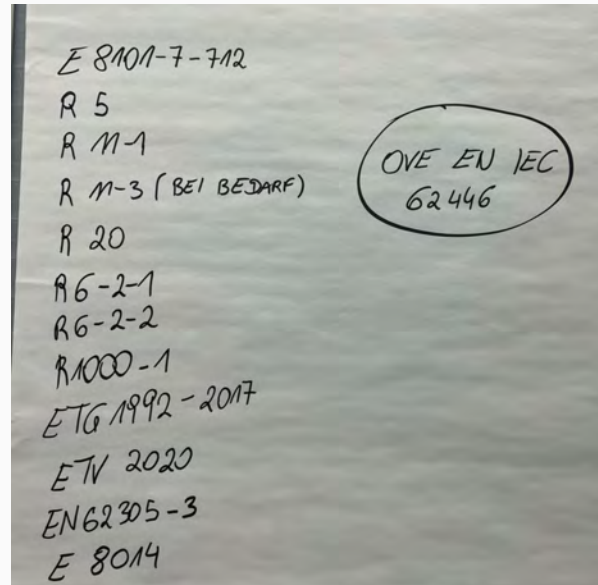 E 8101-7-712
R 5
R 11-1
R 11-3 (BEI BEDARF)
R 20
R6-2-1
R6-2-2
R1000-1
ETG 1992-2017
ETV 2020
EN62305-3
E 8014
OVE EN IEC
62446